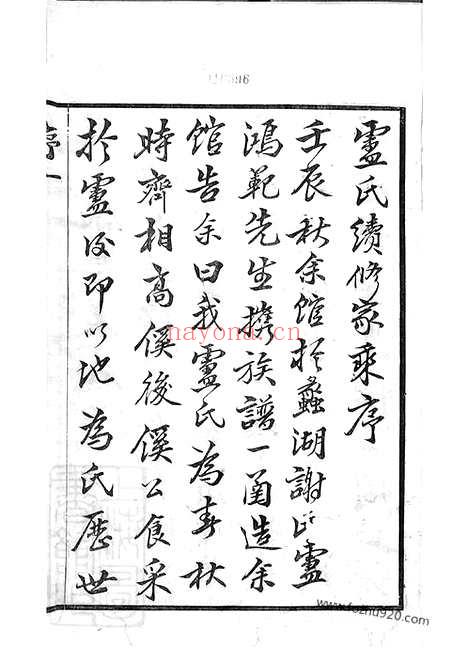 盧氏續修家乘序
壬辰秋余館於蠡湖謝氏盧
鴻範先生攜族譜一函造余
館告余曰我盧氏為春秋
時齊相高傒後傒公食采
於盧後即以地為氏歷世
序一
hayona.cn